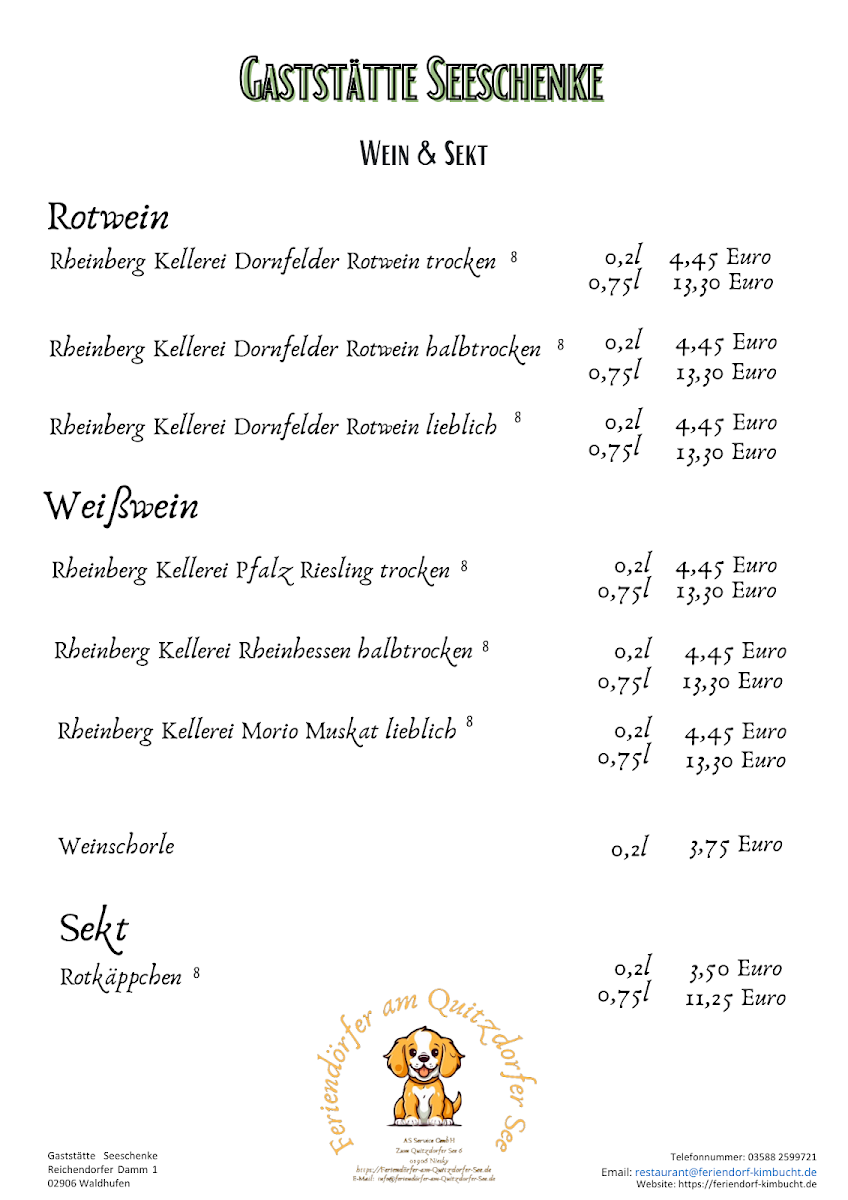 Gaststätte Seeschenke
Wein & Sekt
Rotwein
Rheinberg Kellerei Dornfelder Rotwein trocken 8 0,2l 4,45 Euro
0,75l 13,30 Euro
Rheinberg Kellerei Dornfelder Rotwein halbtrocken 8 0,2l 4,45 Euro
0,75l 13,30 Euro
Rheinberg Kellerei Dornfelder Rotwein lieblich 8 0,2l 4,45 Euro
0,75l 13,30 Euro
Weißwein
Rheinberg Kellerei Pfalz Riesling trocken 8 0,2l 4,45 Euro
0,75l 13,30 Euro
Rheinberg Kellerei Rheinhessen halbtrocken 8 0,2l 4,45 Euro
0,75l 13,30 Euro
Rheinberg Kellerei Morio Muskat lieblich 8 0,2l 4,45 Euro
0,75l 13,30 Euro
Weinschorle 0,2l 3,75 Euro
Sekt
Rotkäppchen 8 0,2l 3,50 Euro
0,75l 11,25 Euro
Feriendörfer am Quitzdorfer See
AS Service GmbH
Zum Quitzdorfer See 6
02906 Niesky
https://Feriendörfer-am-Quitzdorfer-See.de
E-Mail: info@feriendorfer-am-Quitzdorfer-See.de
Gaststätte Seeschenke
Reichendorfer Damm 1
02906 Waldhufen
Telefonnummer: 03588 2599721
Email: restaurant@feriendorf-kimbucht.de
Website: https://feriendorf-kimbucht.de